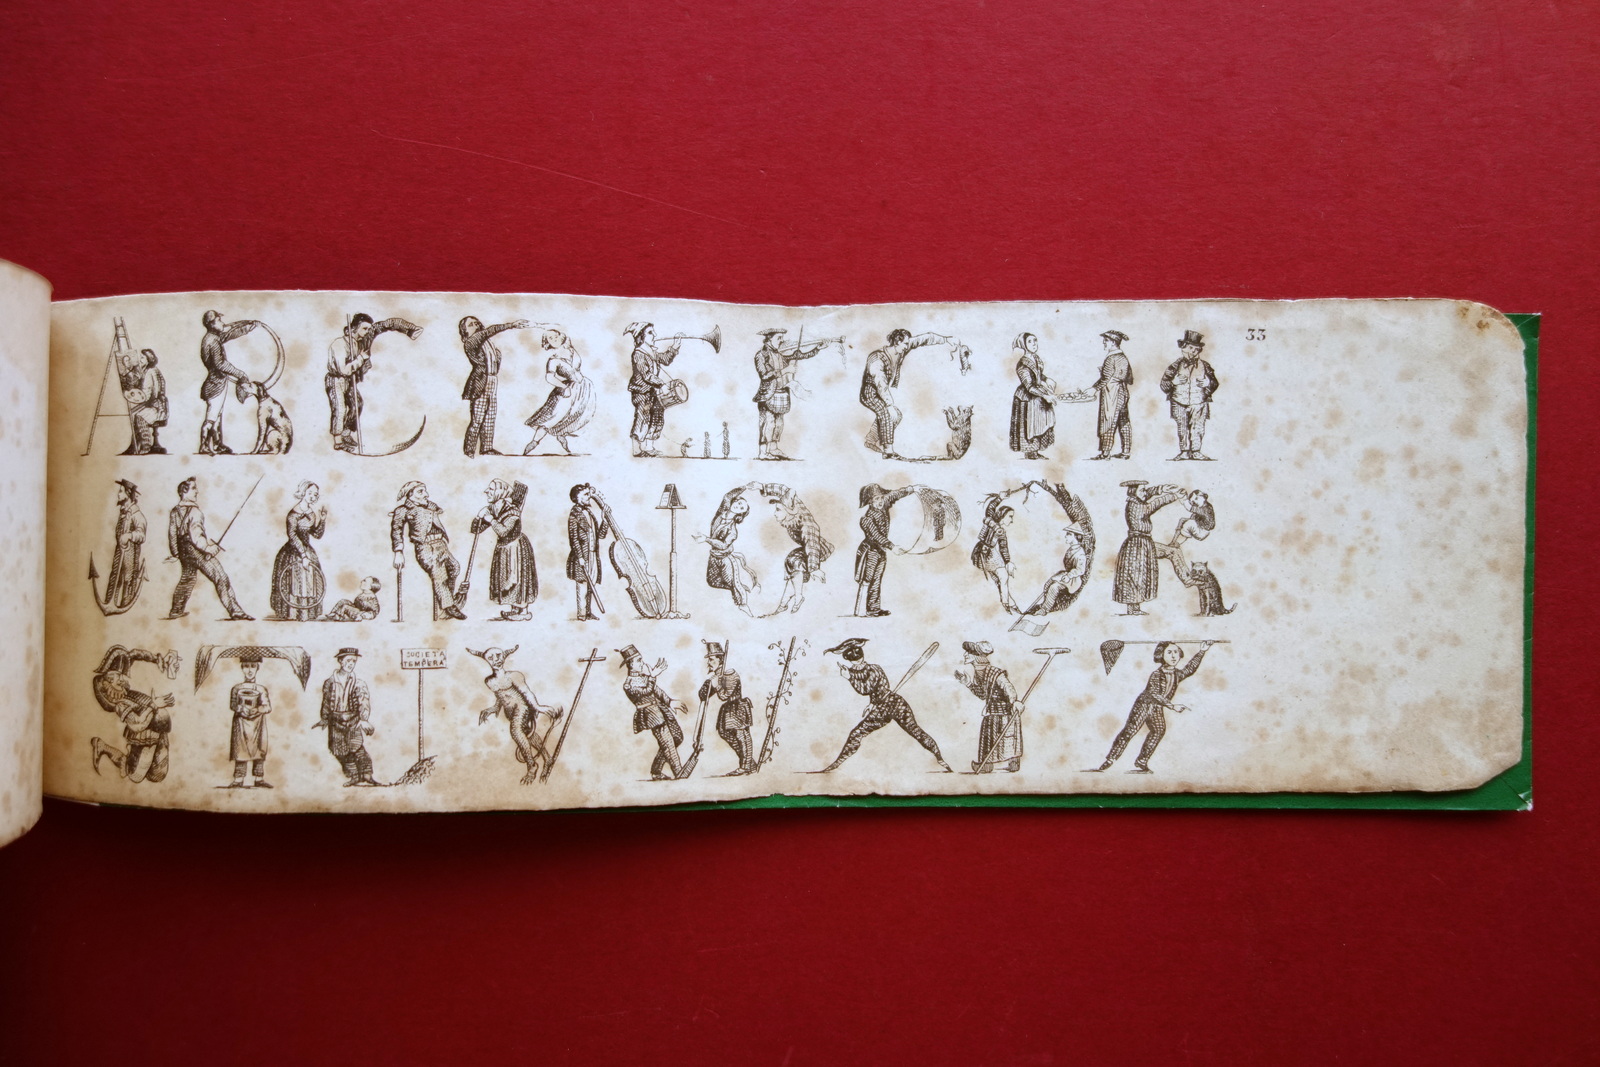 A B C D E F G H I 33
J K L M N O P Q R
S T U V W X Y Z
SOCIETA
TEMPERA